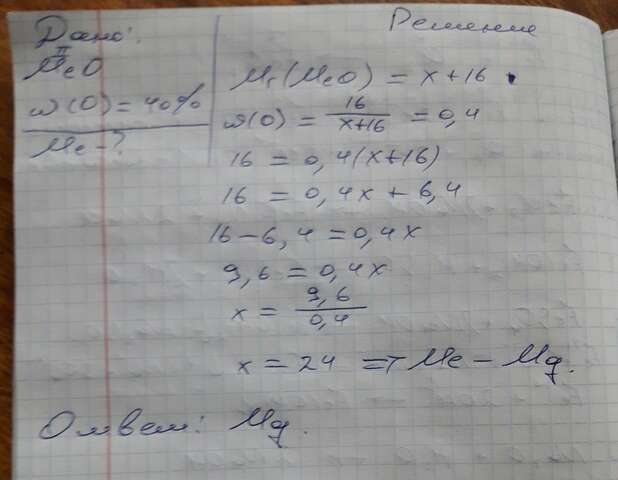 Дано:
II
MeO
ω(O) = 40%
Me - ?
Решение
Mr(MeO) = x + 16
ω(O) = 16/(x+16) = 0,4
16 = 0,4(x+16)
16 = 0,4x + 6,4
16 - 6,4 = 0,4x
9,6 = 0,4x
x = 9,6/0,4
x = 24 => Me - Mg.
Ответ: Mg.